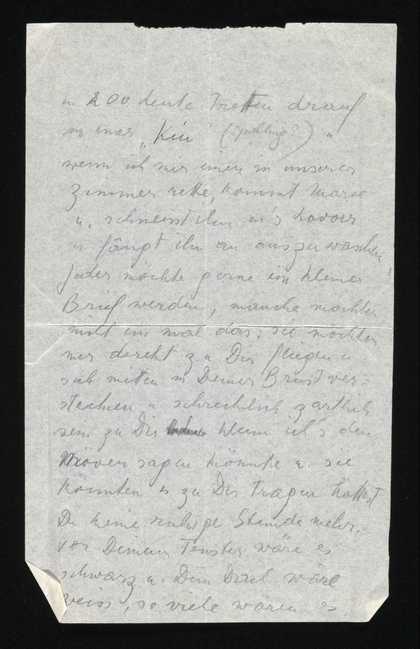 u 200 Leute treten drauf
in einer "Kin (Frühling?) u
wenn ich mir einen in unserer
Zimmer rette, kommt Marie
u. schmeisst ihn in's Lavoir
u fängt ihn an auszuwaschen!
Jeder möchte gerne ein kleiner
Brief werden, manche möchten
nicht ein mal das, sie möchten
nur direkt zu Dir fliegen u
sich mitten in Deiner Brust ver-
stecken u schrecklich zärtlich
sein zu Dir Wenn ich's den
Möven sagen könnte u. sie
könnten es zu Dir tragen hättest
Du keine ruhige Stunde mehr.
vor Deinem Fenster wäre es
schwarz u. Dein Dach wäre
weiss, so viele wären es